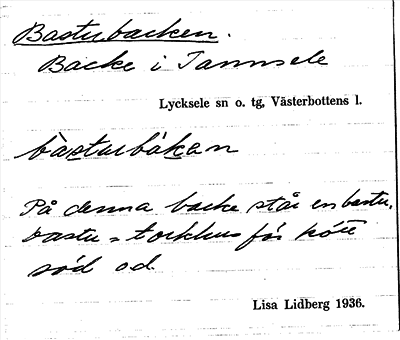 Bastubacken.
Backe i Tannsele
Lycksele sn o. tg, Västerbottens l.
bàstubákan
På denna backe står en bastu.
bastu = torkhus för kött
säd o d.
Lisa Lidberg 1936.